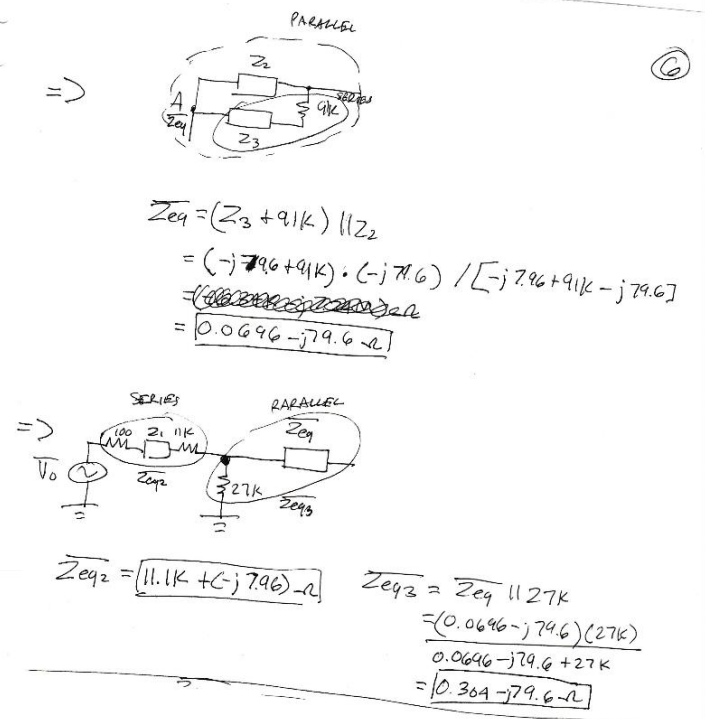 PARALLEL
6
=>
Z2
A
SERIES
91K
Zeq
Z3
Zeq = (Z3 + 91K) || Z2
= (-j7.96 + 91K) • (-j79.6) / [-j7.96 + 91K - j79.6]
= 0.0696 - j79.6 Ω
SERIES
PARALLEL
=>
100 Z1 11K
Zeq
Vo
Zeq2
27K
Zeq3
Zeq2 = 11.1K + (-j7.96) Ω
Zeq3 = Zeq || 27K
= (0.0696 - j79.6)(27K)
0.0696 - j79.6 + 27K
= 0.304 - j79.6 Ω